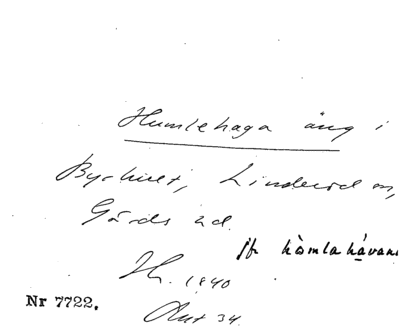 Humlehaga äng i
Byahult, Linderöd sn,
Gärds hd.
jfr hòmlahávan
1840
Nr 7722.
Akt 34.